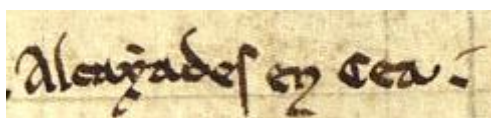 Alcaxades en Cea.